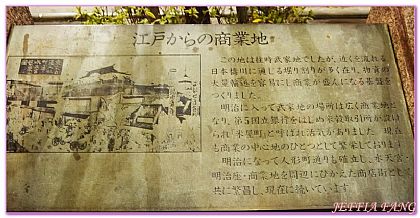 江戸からの商業地
この地は往時武家地でしたが、近くを流れる
日本橋川に通じる堀り割りが多く在り、物資の
大量輸送を容易にし商業が盛んになる基盤を
つくりました。
明治に入って武家地の場所は広く商業地と
なり、第5国立銀行をはじめ米穀取引所が設け
られ"米屋町"と呼ばれ活気がありました。現在
も商業の中心地のひとつとして繁栄しております
明治になって人形町通りも確立し、水天宮
明治座・商業地を周辺にひかえた商店街として
共に繁昌し、現在に続いています
JEFFIA FANG